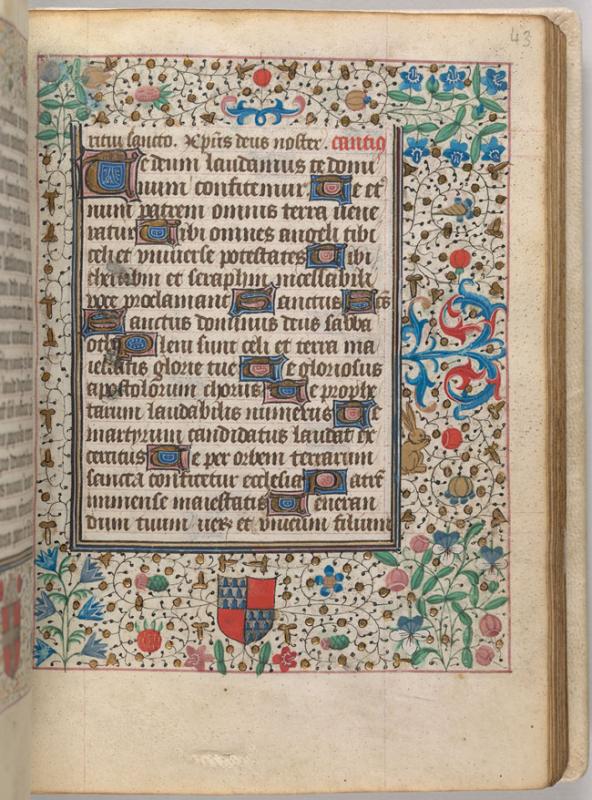 43
ritui sancto. Xpūs deus noster. cantiq
Te deum laudamus te domi
num confitemur Te et
num patrem omnis terra vene
ratur Tibi omnes angeli tibi
celi et vniuerse potestates Tibi
cherubin et seraphin incessabili
voce proclamant Sanctus Scs
Sanctus dominus deus saba
oth Pleni sunt celi et terra ma
iestatis glorie tue Te gloriosus
apostolorum chorus Te prophe
tarum laudabilis numerus Te
martyrum candidatus laudat ex
ercitus Te per orbem terrarum
sancta confitetur ecclesia Patrē
immense maiestatis Veneran
dum tuum uerū et vnicum filium